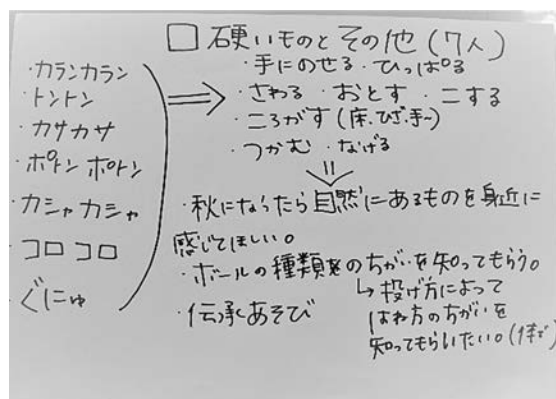 □ 硬いものとその他(7人)
・カランカラン
・トントン
・カサカサ
・ポトン ポトン
・カシャ カシャ
・コロ コロ
・ぐにゅ
・手にのせる ・ひっぱる
・さわる ・おとす ・こする
・ころがす(床、ひざ、手〜)
・つかむ ・なげる
・秋になったら自然にあるものを身近に
感じてほしい。
・ボールの種類のちがいを知ってもらう。
↳ 投げ方によって
はね方のちがいを
知ってもらいたい。
・伝承あそび